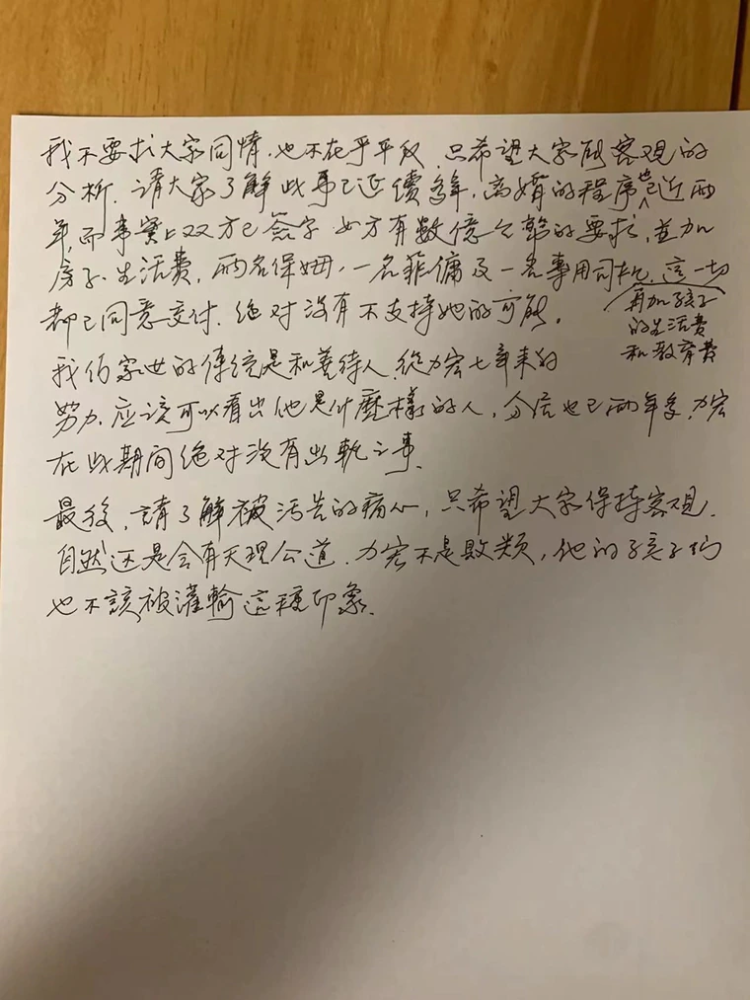 我不要求大家同情.也不在乎平反.只希望大家能客观的
分析.請大家了解此事已延續多年,离婚的程序也近两
年,而事實上双方已簽字 女方有数億台幣的要求,並加
房子.生活費,兩名保姆,一名菲傭及一名專用司机,這一切
再加孩子
的生活費
和教育費
都已同意交付.绝对没有不支持她的可能。
我们家世的傳統是和善待人,從力宏七年来的
努力.应該可以看出他是什麼樣的人,分居也已两年多,力宏
在此期间绝对没有出軌之事.
最後,請了解被污告的痛心,只希望大家保持客观.
自然还是会有天理公道.力宏不是敗類,他的孩子们
也不該被灌輸這種印象.